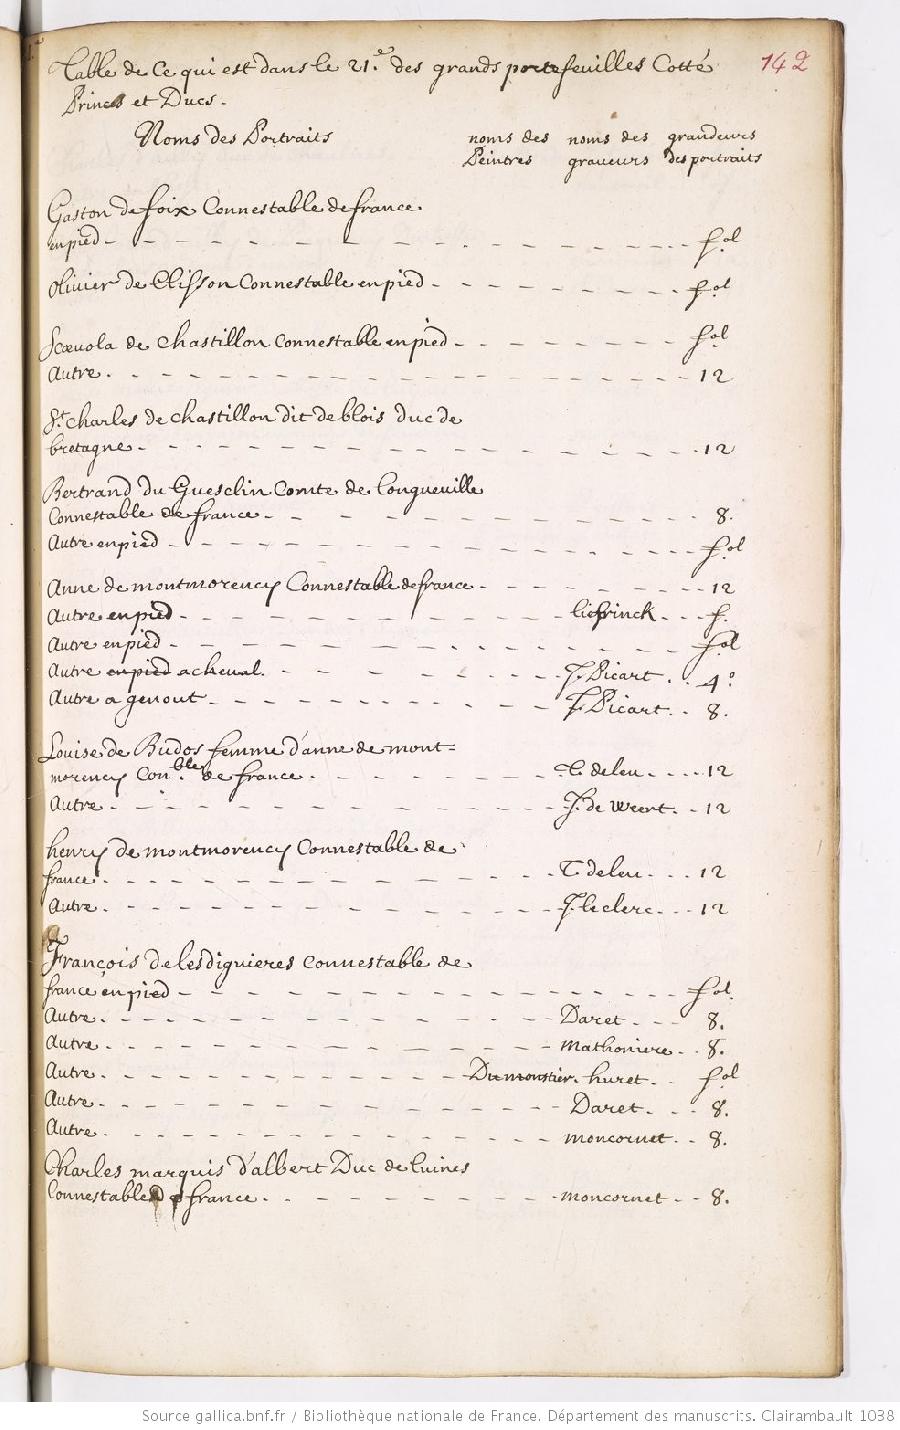 Table de Ce qui est dans le 21.e des grands portefeuilles Cotté 142
Princes et Ducs.
Noms des Portraits noms des noms des grandeurs
Peintres graveurs des portraits
Gaston de foix Connestable de france.
en pied - - - - - - - - - - fol
Olivier de Clisson Connestable en pied - - - - - - fol
Scævola de Chastillon Connestable en pied - - - - - - fol
Autre. - - - - - - - - - - 12
St. Charles de Chastillon dit de blois Duc de
bretagne - - - - - - - - - - 12
Bertrand du Guesclin Comte de Longueville
Connestable de france - - - - - - - - 8.
Autre en pied - - - - - - - - - - fol
Anne de montmorency Connestable de france - - - - - - 12
Autre en pied - - - - - - - - liefrinck - - - f.
Autre en pied - - - - - - - - - - fol
Autre en pied a cheval. - - - - - - J. Picart . . 4°
Autre a genout - - - - - - - J. Picart . . 8.
Louise de Budos femme d'anne de mont=
morency Con.ble de france . - - - - - T. deleu - - - - 12
Autre - - - - - - - - - J. de weert . - 12
henry de montmorency Connestable de
france. - - - - - - - - - T. deleu - - - 12
Autre. - - - - - - - - - J. leclerc - - - 12
François de lesdiguieres Connestable de
france en pied - - - - - - - - - - fol.
Autre. - - - - - - - - - Daret - - - 8.
Autre. - - - - - - - - - mathoniere - - 8.
Autre. - - - - - - - - Dumonstier. huret - . fol
Autre. - - - - - - - - - Daret - - - 8.
Autre. - - - - - - - - - moncornet - - 8.
Charles marquis d'albert Duc de luines
Connestable de france - - - - - - - moncornet - - 8.
Source gallica.bnf.fr / Bibliothèque nationale de France. Département des manuscrits. Clairambault 1038